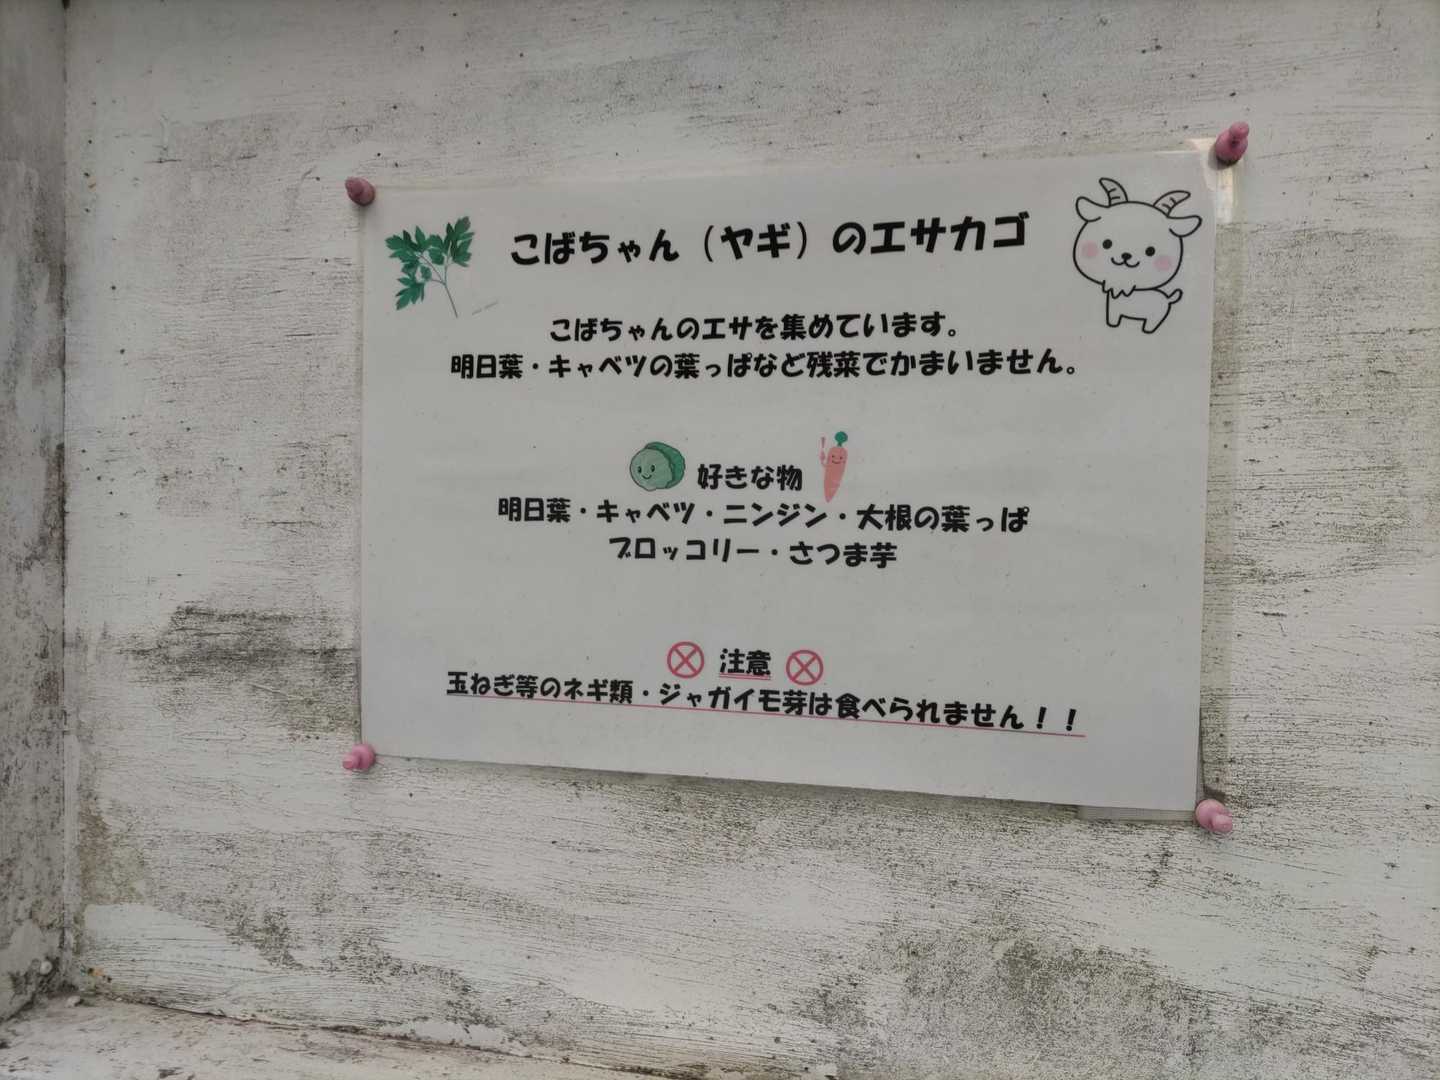 こばちゃん（ヤギ）のエサカゴ
こばちゃんのエサを集めています。
明日葉・キャベツの葉っぱなど残菜でかまいません。
好きな物
明日葉・キャベツ・ニンジン・大根の葉っぱ
ブロッコリー・さつま芋
注意
玉ねぎ等のネギ類・ジャガイモ芽は食べられません！！